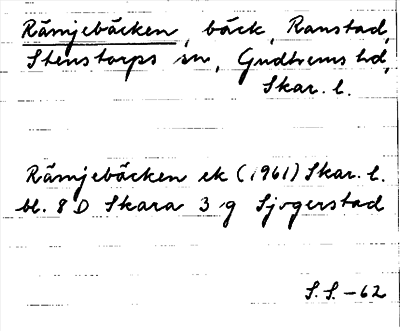 Rämjebäcken, bäck, Ranstad,
Stenstorps sn, Gudhems hd,
Skar. l.
Rämjebäcken ek (1961) Skar. l.
bl. 8 D Skara 3 g Sjogerstad
S.S. -62